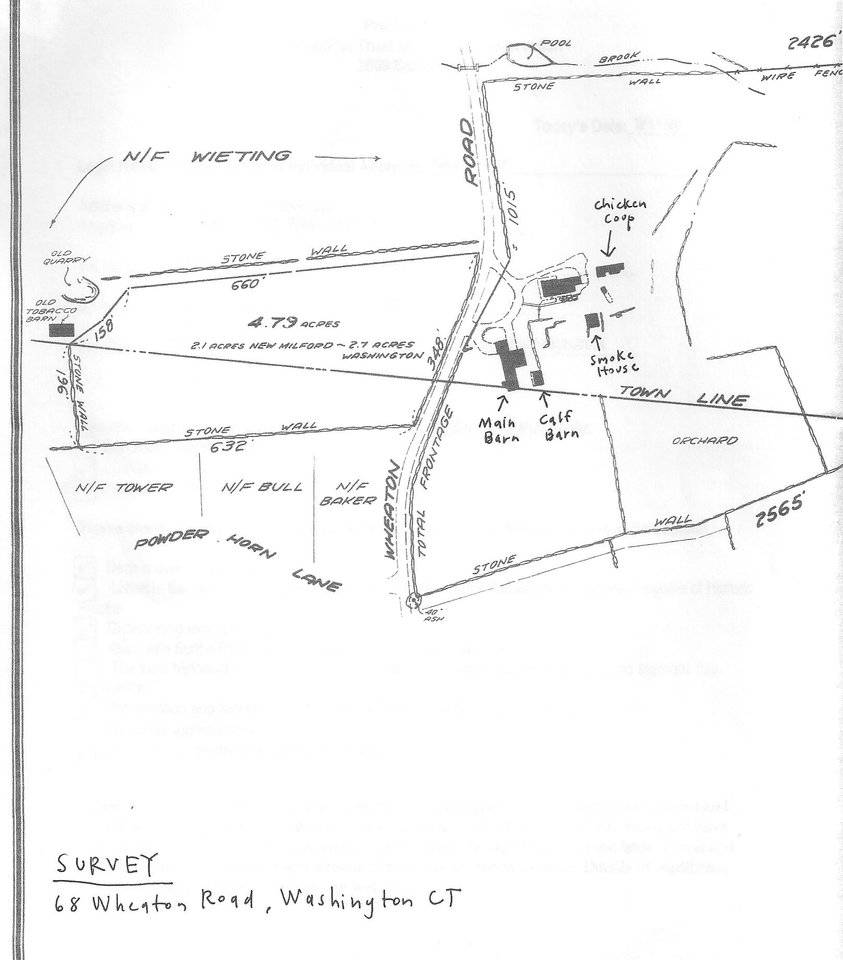 POOL
BROOK
2426'
STONE WALL
WIRE FENC
N/F WIETING
ROAD
1015'
chicken
coop
OLD
QUARRY
STONE WALL
660'
OLD
TOBACCO
BARN
158'
4.79 ACRES
2.1 ACRES NEW MILFORD ~ 2.7 ACRES
WASHINGTON
348'
Smoke
House
196'
STONE WALL
TOWN LINE
Main
Barn
Calf
Barn
STONE WALL
632'
ORCHARD
N/F TOWER
N/F BULL
N/F
BAKER
WHEATON
TOTAL FRONTAGE
2565'
STONE WALL
POWDER HORN LANE
40"
ASH
SURVEY
68 Wheaton Road, Washington CT